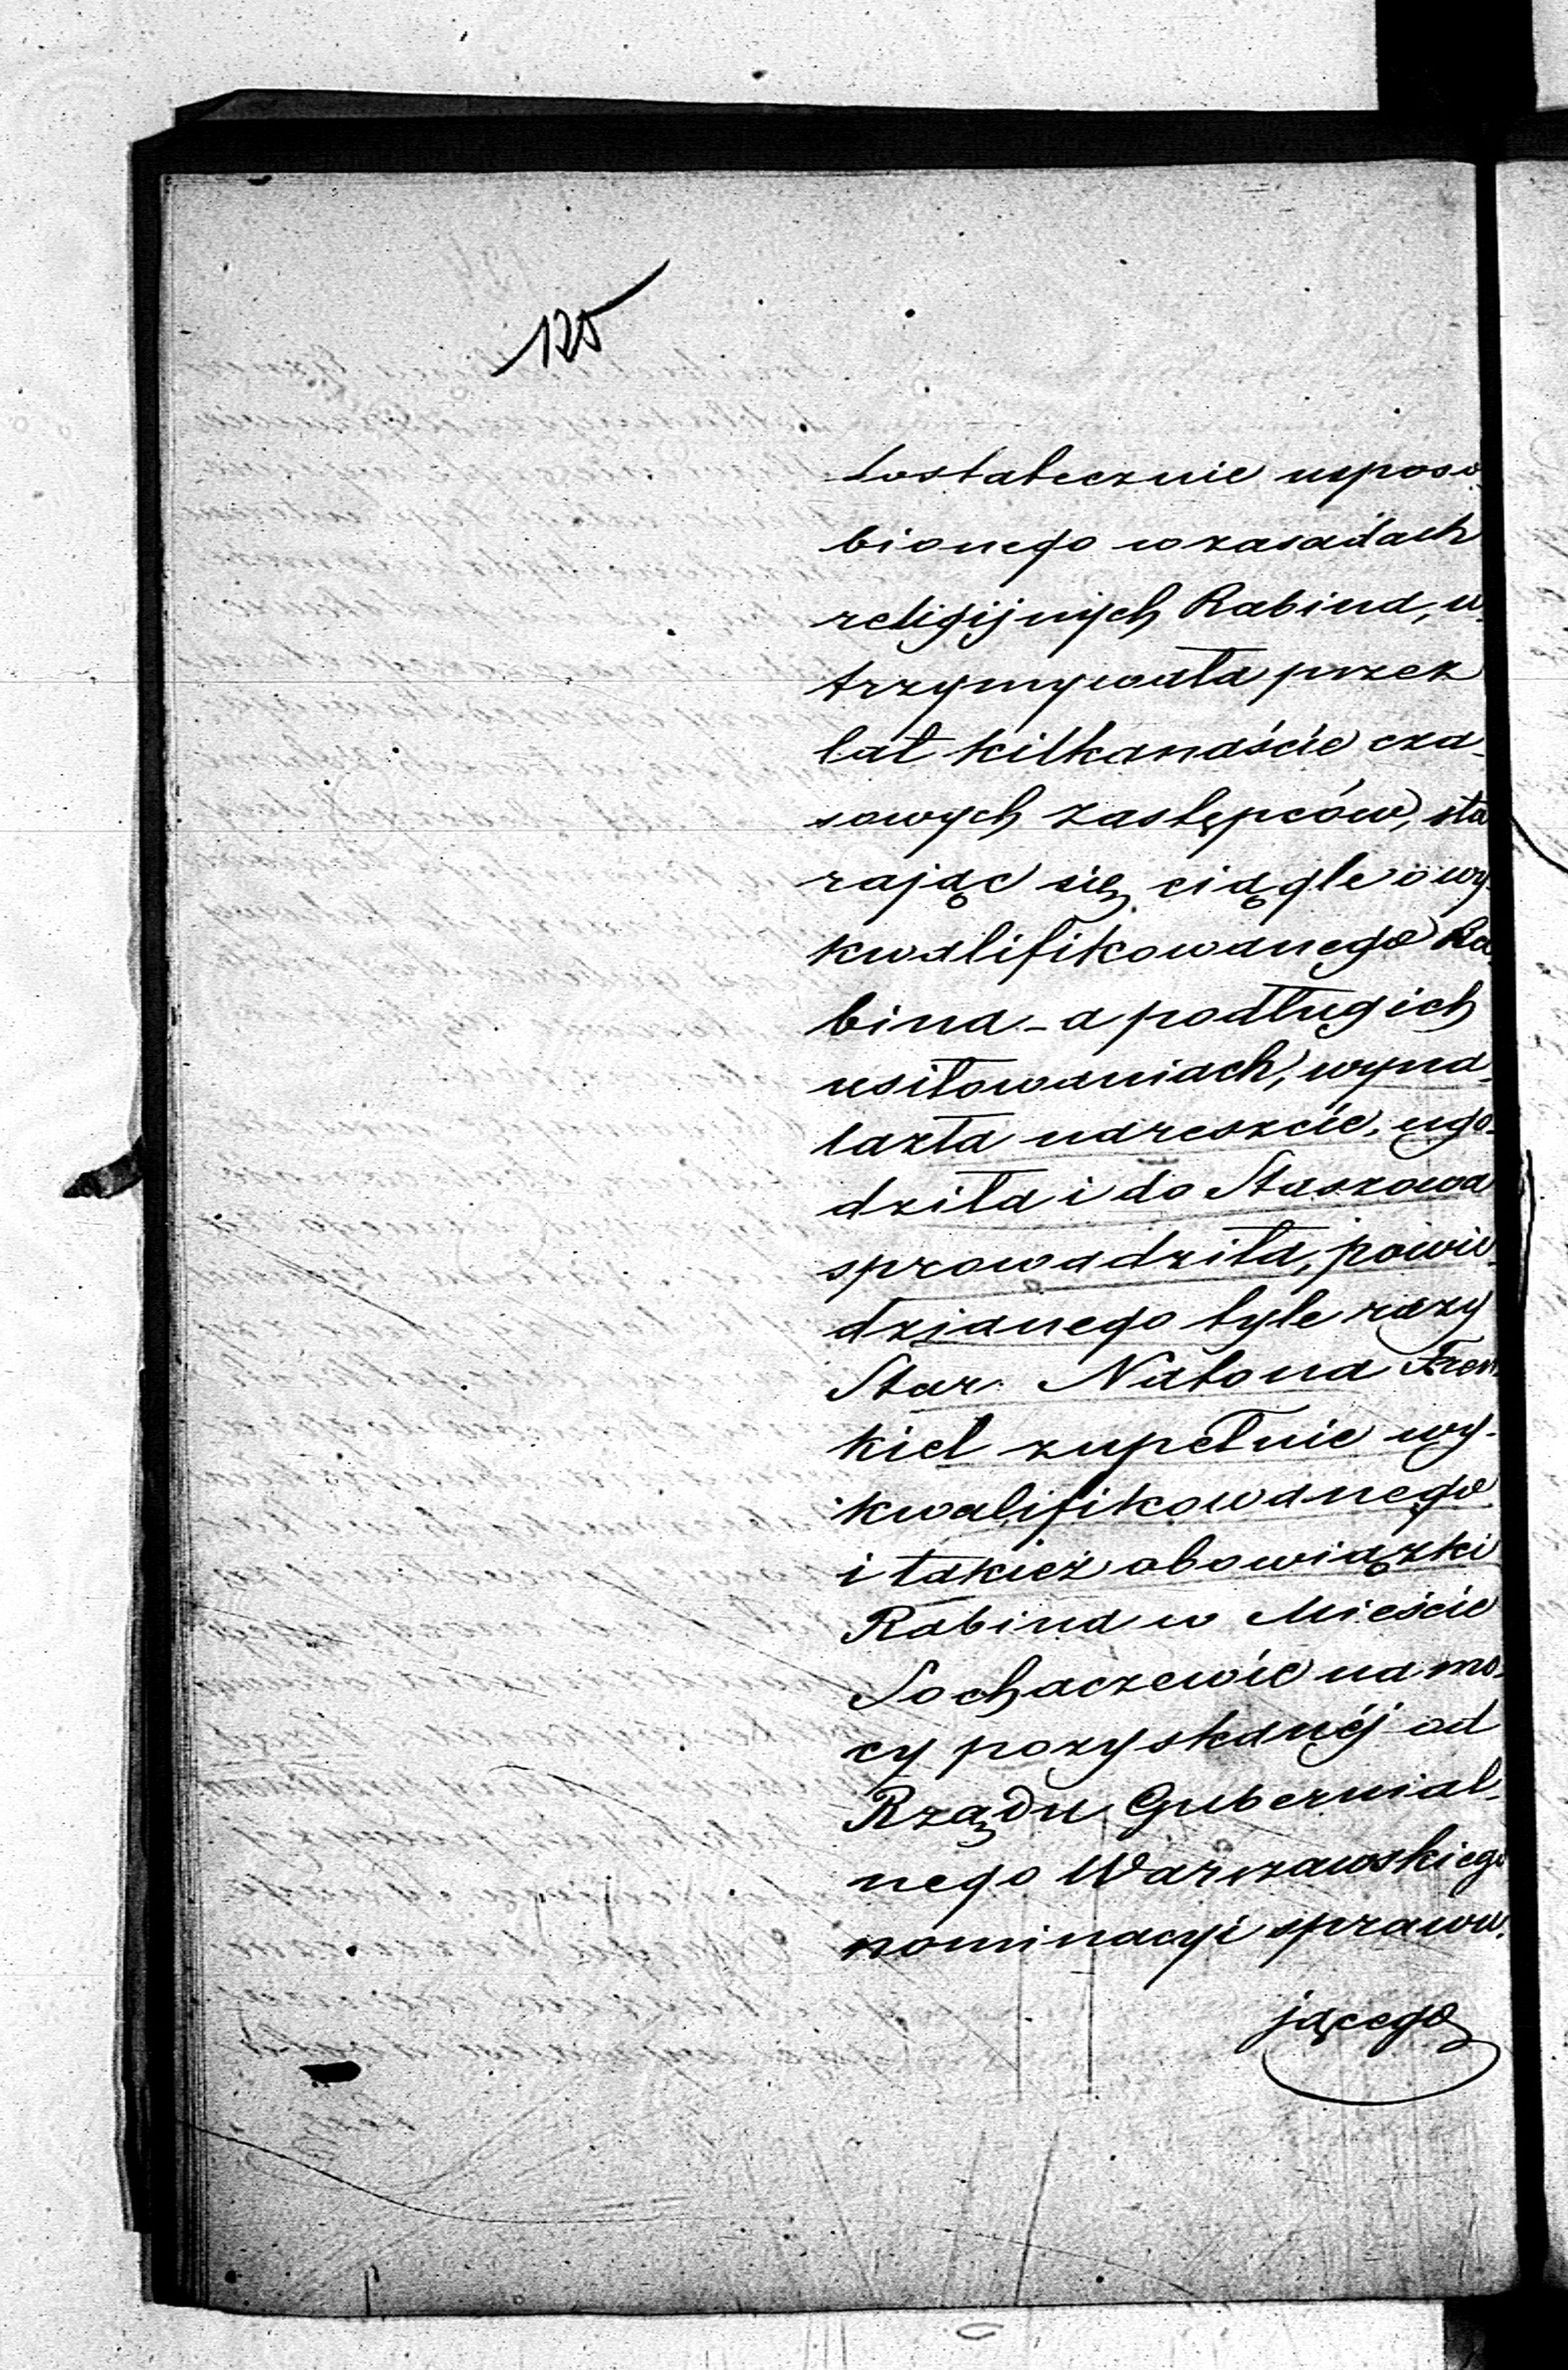 125
dostatecznie uposo
bionego w zasadach
religijnych Rabina, u
trzymywała przez
lat kilkanaście cza-
sowych zastępców, sta
rając się ciągle o wy-
kwalifikowanego Ra
bina – a po długich
usiłowaniach, wyna-
lazła nareszcie, ugo-
dziła i do Staszowa
sprowadziła, powie-
dzianego tyle razy
Star. Natana Fren
kiel zupełnie wy-
kwalifikowanego
i takież obowiązki
Rabina w Mieście
Sochaczewie na mo-
cy pozyskanéj od
Rządu Gubernial-
nego Warszawskiego
nominacyi sprawu-
jącego